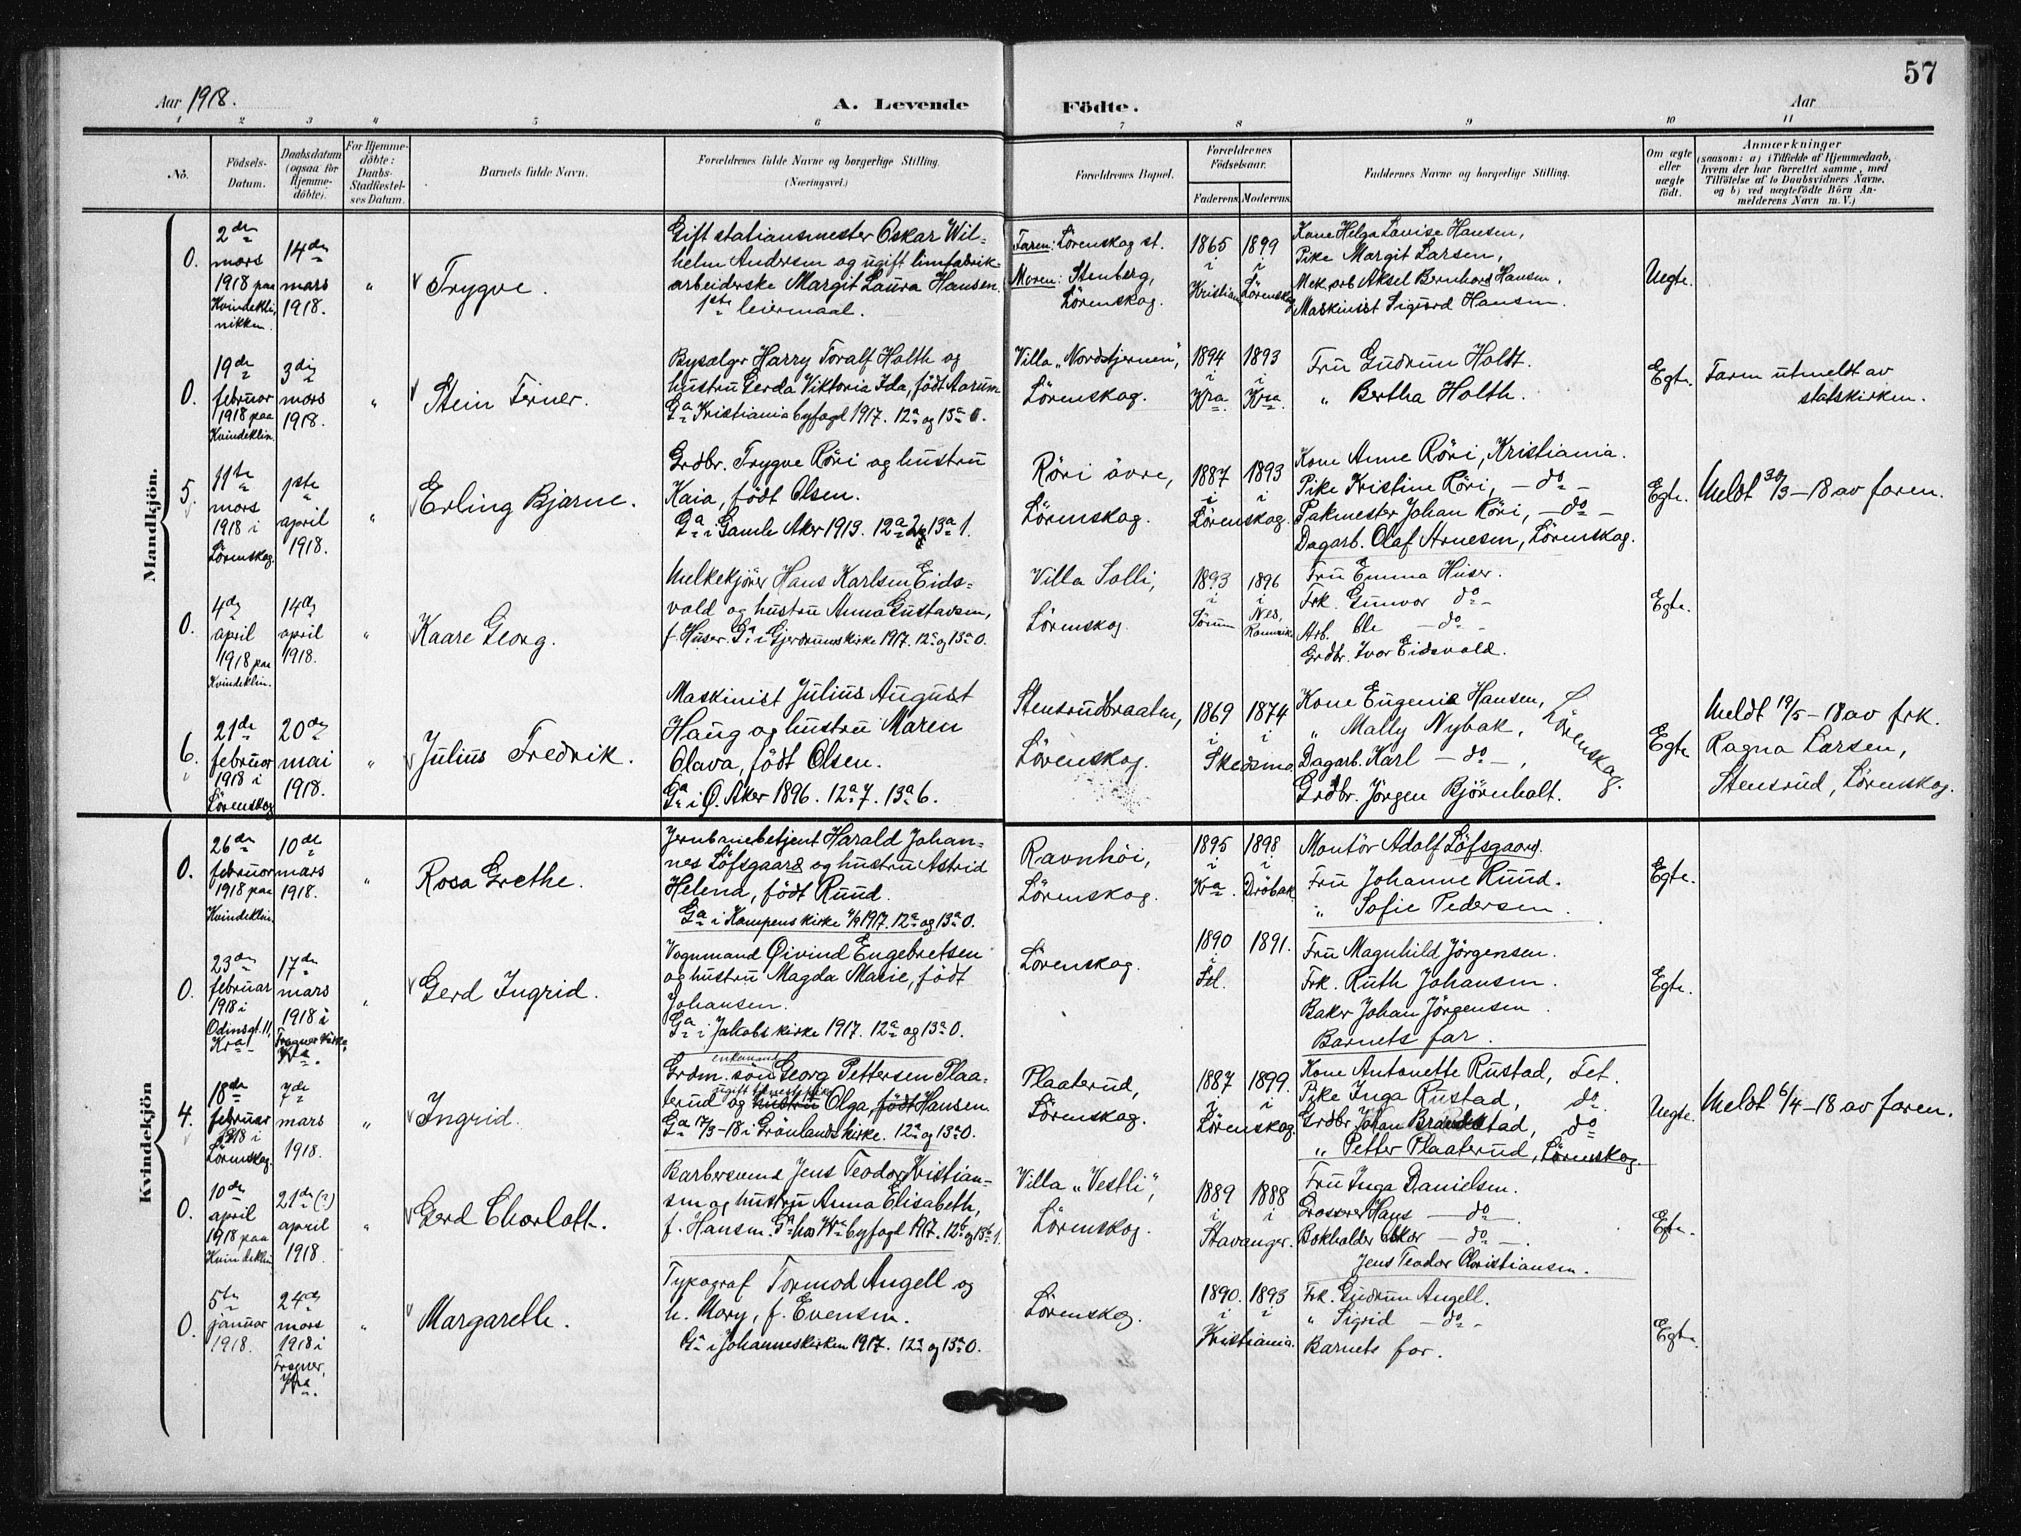 57
Aar 1918.
A. Levende
Födte.
Aar
1 2 3 4 5 6 7 8 9 10 11
No.
Födsels-Datum.
Daabsdatum (ogsaa for Hjemme-döbte).
For Hjemme-döbte: Daabs-Stadfæstel-ses Datum.
Barnets fulde Navn.
Forældrenes fulde Navne og borgerlige Stilling.
(Næringsvei.)
Forældrenes Bopæl.
Forældrenes Födselsaar.
Faderens. Moderens.
Faddernes Navne og borgerlige Stilling.
Om ægte eller uægte födt.
Anmærkninger
(saasom: a) i Tilfælde af Hjemmedaab,
hvem der har forrettet samme, med
Tilföielse af to Daabsvidners Navne,
og b) ved uægtefödte Börn An-
melderens Navn m. V.)
Mandkjön.
0.
2den
mars
1918 paa
Kvindekli-
nikken.
14de
mars
1918.
"
Trygve.
Gift stationsmester Oskar Wil-
helm Andersen og ugift limfabrik-
arbeiderske Margit Laura Hansen.
1ste leiermaal.
Faren: Lörenskog st.
Moren: Stenberg,
Lörenskog.
1865 i Kristiania
1899 i Lörenskog
Kone Helga Lovise Hansen,
Pike Margit Larsen,
Mek. arb. Aksel Bernhard Hansen,
Maskinist Sigurd Hansen.
Uegte.
0.
19de
februar
1918 paa
Kvindeklin.
3die
mars
1918.
"
Stein Ferner.
Bysælger Harry Toralf Holth og
hustru Gerda Viktoria Ida, födt Aarum
Ga Kristiania byfogd 1917. 12a og 13a 0.
Villa "Nordstjernen",
Lörenskog.
1894 i Kra.
1893 i Kra.
Fru Gudrun Holdt.
" Bertha Holth.
Egte.
Faren utmeldt av
statskirken.
5.
11te
mars
1918 i
Lörenskog.
1ste
april
1918.
"
Erling Bjarne.
Grdbr. Trygve Röri og hustru
Kaia, födt Olsen.
Ga i Gamle Aker 1913. 12a 2 og 13a 1.
Röri övre,
Lörenskog.
1887 i 1893 i
Lörenskog.
Kone Anne Röri, Kristiania.
Pike Kristine Röri, - do -
Pakmester Johan Röri, - do -
Dagarb. Olaf Arnesen, Lörenskog.
Egte.
Meldt 30/3 - 18 av faren.
0.
4de
april
1918 paa
Kvindeklin.
14de
april
1918.
"
Kaare Georg.
Melkekjörer Hans Karlsen Eids-
vold og hustru Anna Gustavsen,
f. Huser. Ga i Gjerdrums kirke 1917. 12a og 13a 0.
Villa Solli,
Lörenskog.
1893 i Sörum
1896 i Nes, Romerike
Fru Emma Huser.
Frk. Gunvor do -
Arb. Ole - do -
Grdbr. Ivar Eidsvold.
Egte.
6.
21de
februar
1918 i
Lörenskog
20de
mai
1918.
"
Julius Fredrik.
Maskinist Julius August
Haug og hustru Maren
Olava, födt Olsen.
Ga i Ö. Aker 1896. 12a 7. 13a 6.
Stensrudbraaten,
Lörenskog.
1869 i 1874 i
Skedsmo.
Kone Eugenie Hansen,
" Mally Nybak,
Dagarb. Karl - do -,
Lörenskog.
Grdbr. Jörgen Björnholt.
Egte
Meldt 19/5 - 18 av frk.
Ragna Larsen,
Stensrud, Lörenskog.
Kvindekjön
0.
26de
februar
1918 paa
Kvindeklin.
10de
mars
1918.
"
Rosa Grethe.
Jernbanebetjent Harald Johan-
nes Löfsgaard og hustru Astrid
Helena, födt Ruud.
Ga i Kampens kirke 1917. 12a og 13a 0.
Ravnhöi,
Lörenskog.
1895 i Kra.
1898 i Dröbak
Montör Adolf Löfsgaard.
Fru Johanne Ruud.
" Sofie Pedersen.
Egte.
0.
23de
februar
1918 i
Odinsgt. 11,
Kra
17de
mars
1918 i
Frogner kirke
Kra.
"
Gerd Ingrid.
Vognmand Öivind Engebretsen
og hustru Magda Marie, födt
Johansen.
Ga i Jakobs kirke 1917. 12a og 13a 0.
Lörenskog.
1890 1891.
Fet.
Fru Magnhild Jörgensen.
Frk. Ruth Johansen.
Baker Johan Jörgensen.
Barnets far.
Egte.
4.
18de
februar
1918 i
Lörenskog.
7de
mars
1918.
"
Ingrid.
enkemand
Grdm. sön Georg Pettersen Plaa-
terud og hustru Olga, födt Hansen.
Ga 17/3 - 18 i Grönlands kirke. 12a og 13a 0.
Plaaterud,
Lörenskog.
1887 i 1899 i
Lörenskog.
Kone Antonette Rustad, Fet.
Pike Inga Rustad, do.
Grdbr. Johan stad, do
" Petter Plaaterud, Lörenskog.
Uegte.
Meldt 6/4 - 18 av faren.
0.
10de
april
1918 paa
Kvindeklin.
21de (?)
april
1918.
"
Gerd Charlott.
Barbersvend Jens Teodor Kristian-
sen og hustru Anna Elisabeth,
f. Hansen. Ga hos Kra byfogd 1917. 12a og 13a 1.
Villa "Vestli",
Lörenskog.
1889 i 1888 i
Stavanger.
Fru Inga Danielsen.
Grosserer Hans - do -
Bokholder Oskar - do -.
Jens Teodor Christiansen.
Egte.
0.
5te
januar
1918.
24de
mars
1918 i
Frogner,
Kra.
"
Margarethe.
Typograf Tormod Angell og
h. Mary, f. Evensen.
Ga i Johanneskirken 1917. 12a og 13a 0.
Lörenskog.
1890 i 1893 i
Kristiania.
Frk. Gudrun Angell.
" Sigrid - do -
Barnets far.
Egte.